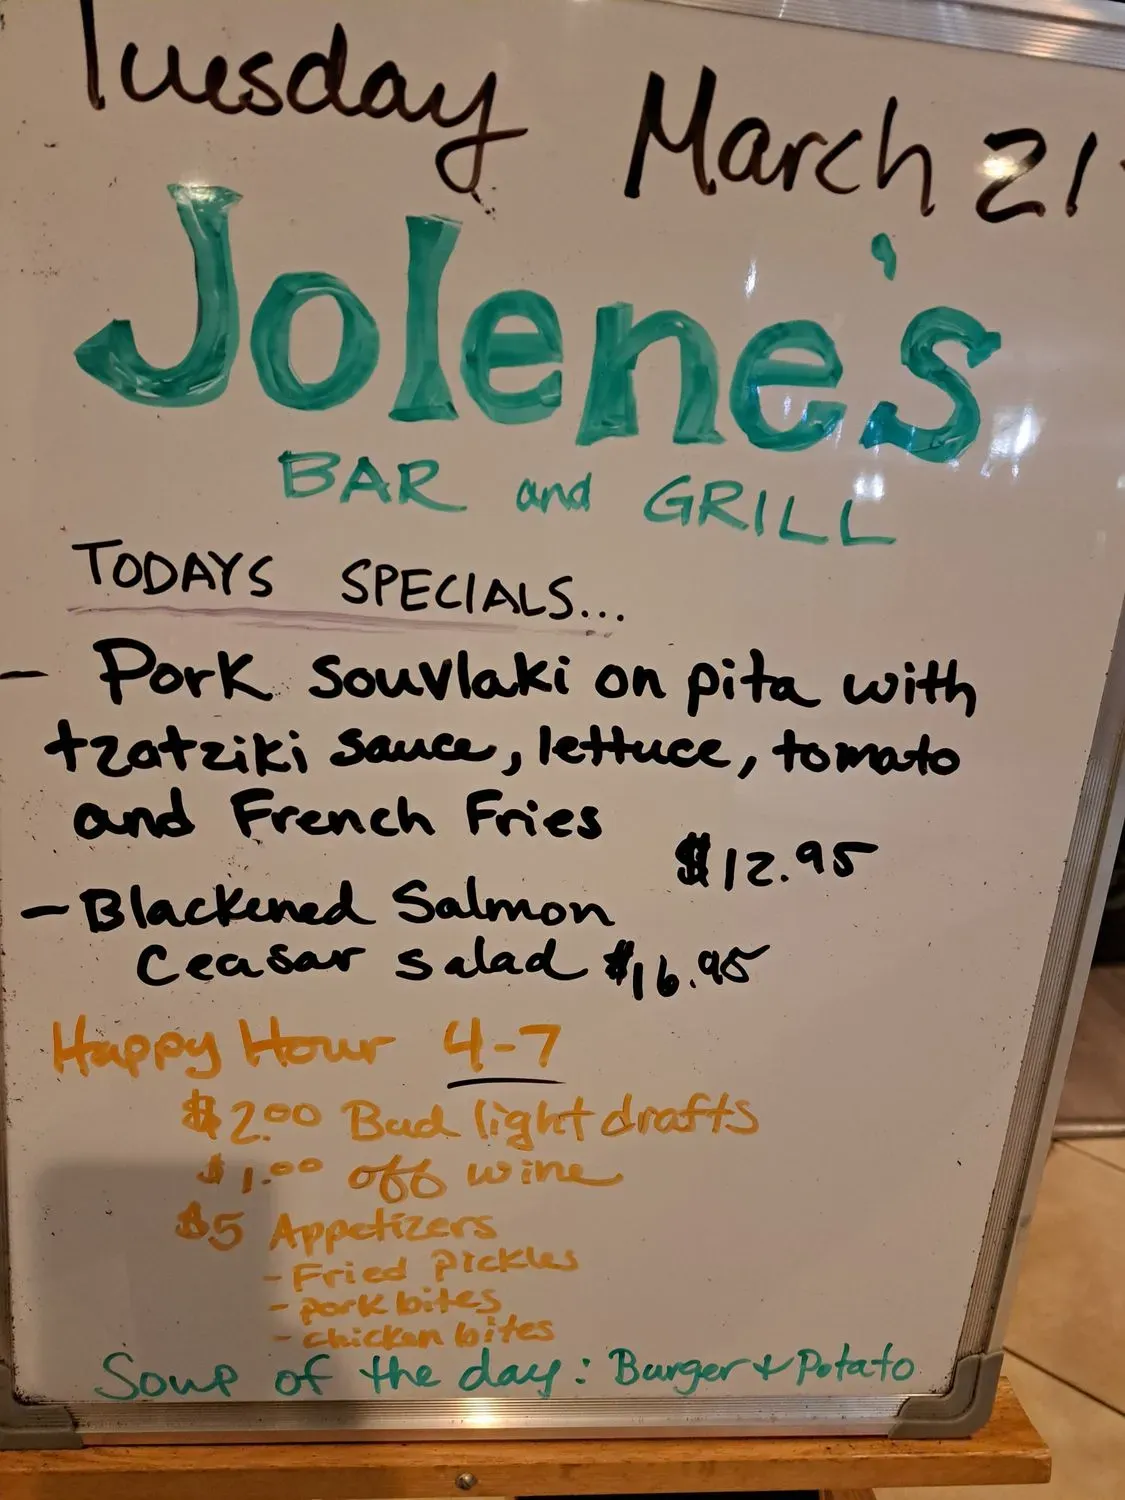 Tuesday March 21
Jolene's
BAR and GRILL
TODAYS SPECIALS...
- Pork souvlaki on pita with
tzatziki sauce, lettuce, tomato
and French Fries
$12.95
- Blackened Salmon
Ceasar salad $16.95
Happy Hour 4-7
$2.00 Bud light drafts
$1.00 off wine
$5 Appetizers
- Fried Pickles
- pork bites
- chicken bites
Soup of the day: Burger & Potato